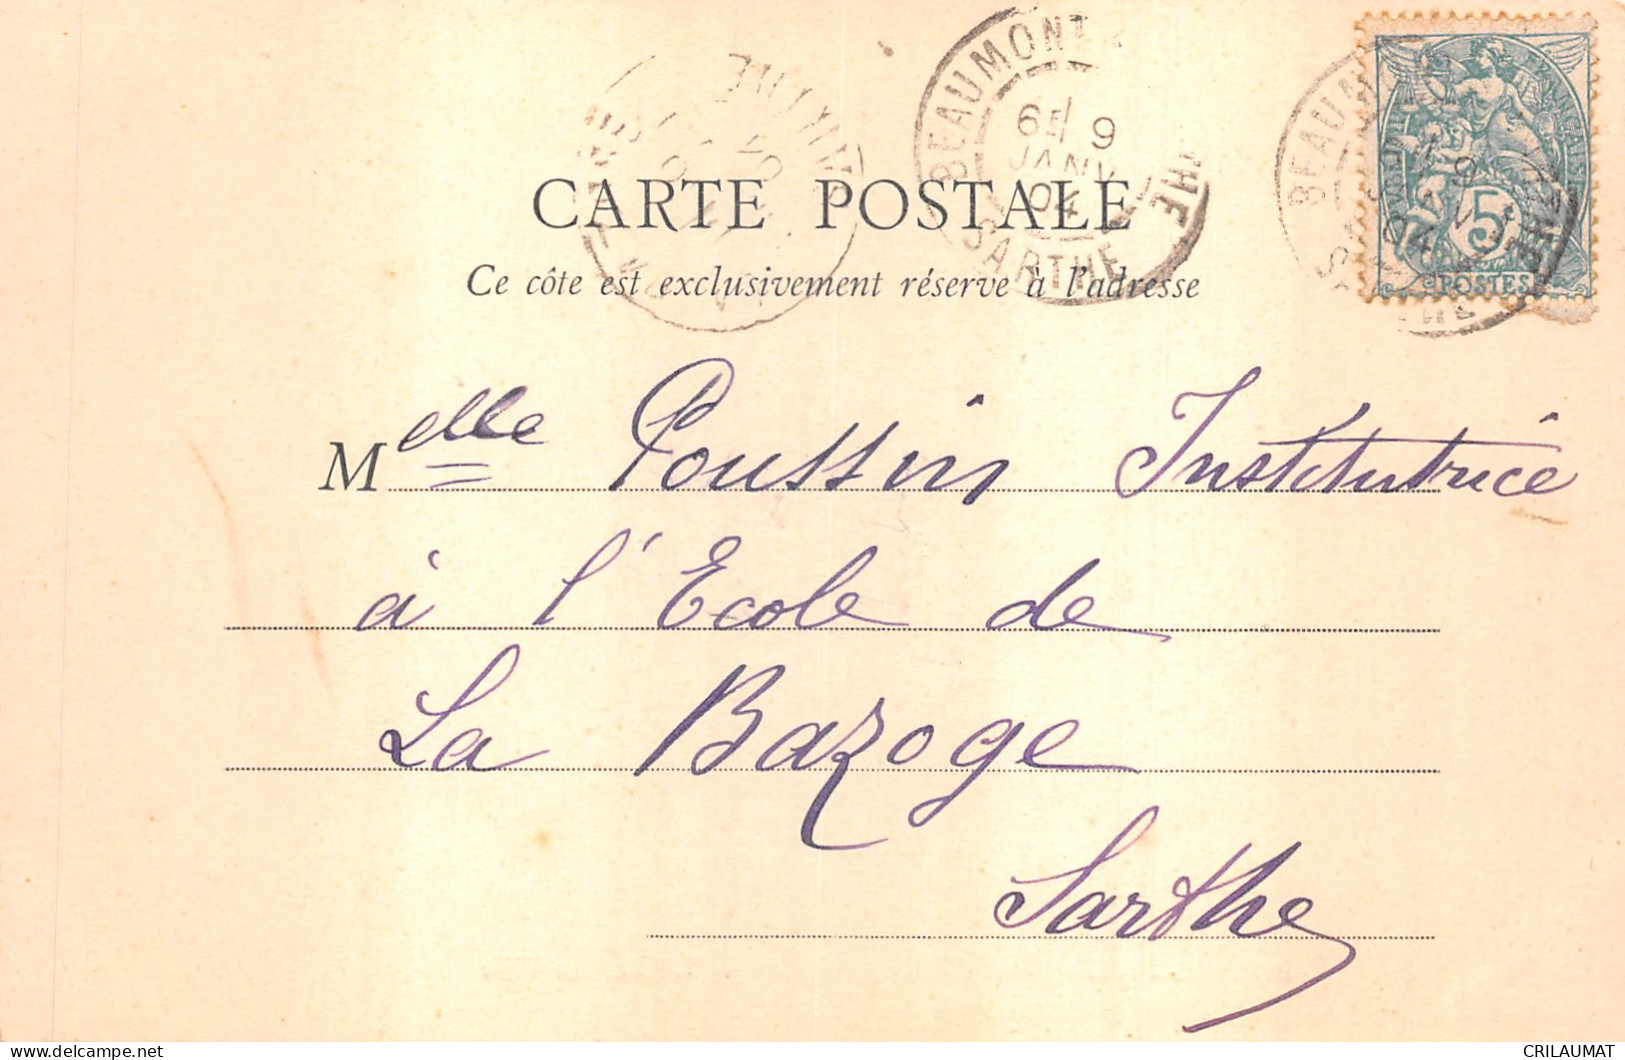 BEAUMONT
6E 9
JANV
04
SARTHE
5
POSTES
CARTE POSTALE
Ce côte est exclusivement réserve à l'adresse
Melle Poussin Institutrice
à l'Ecole de
La Bazoge
Sarthe
CRILAUMAT